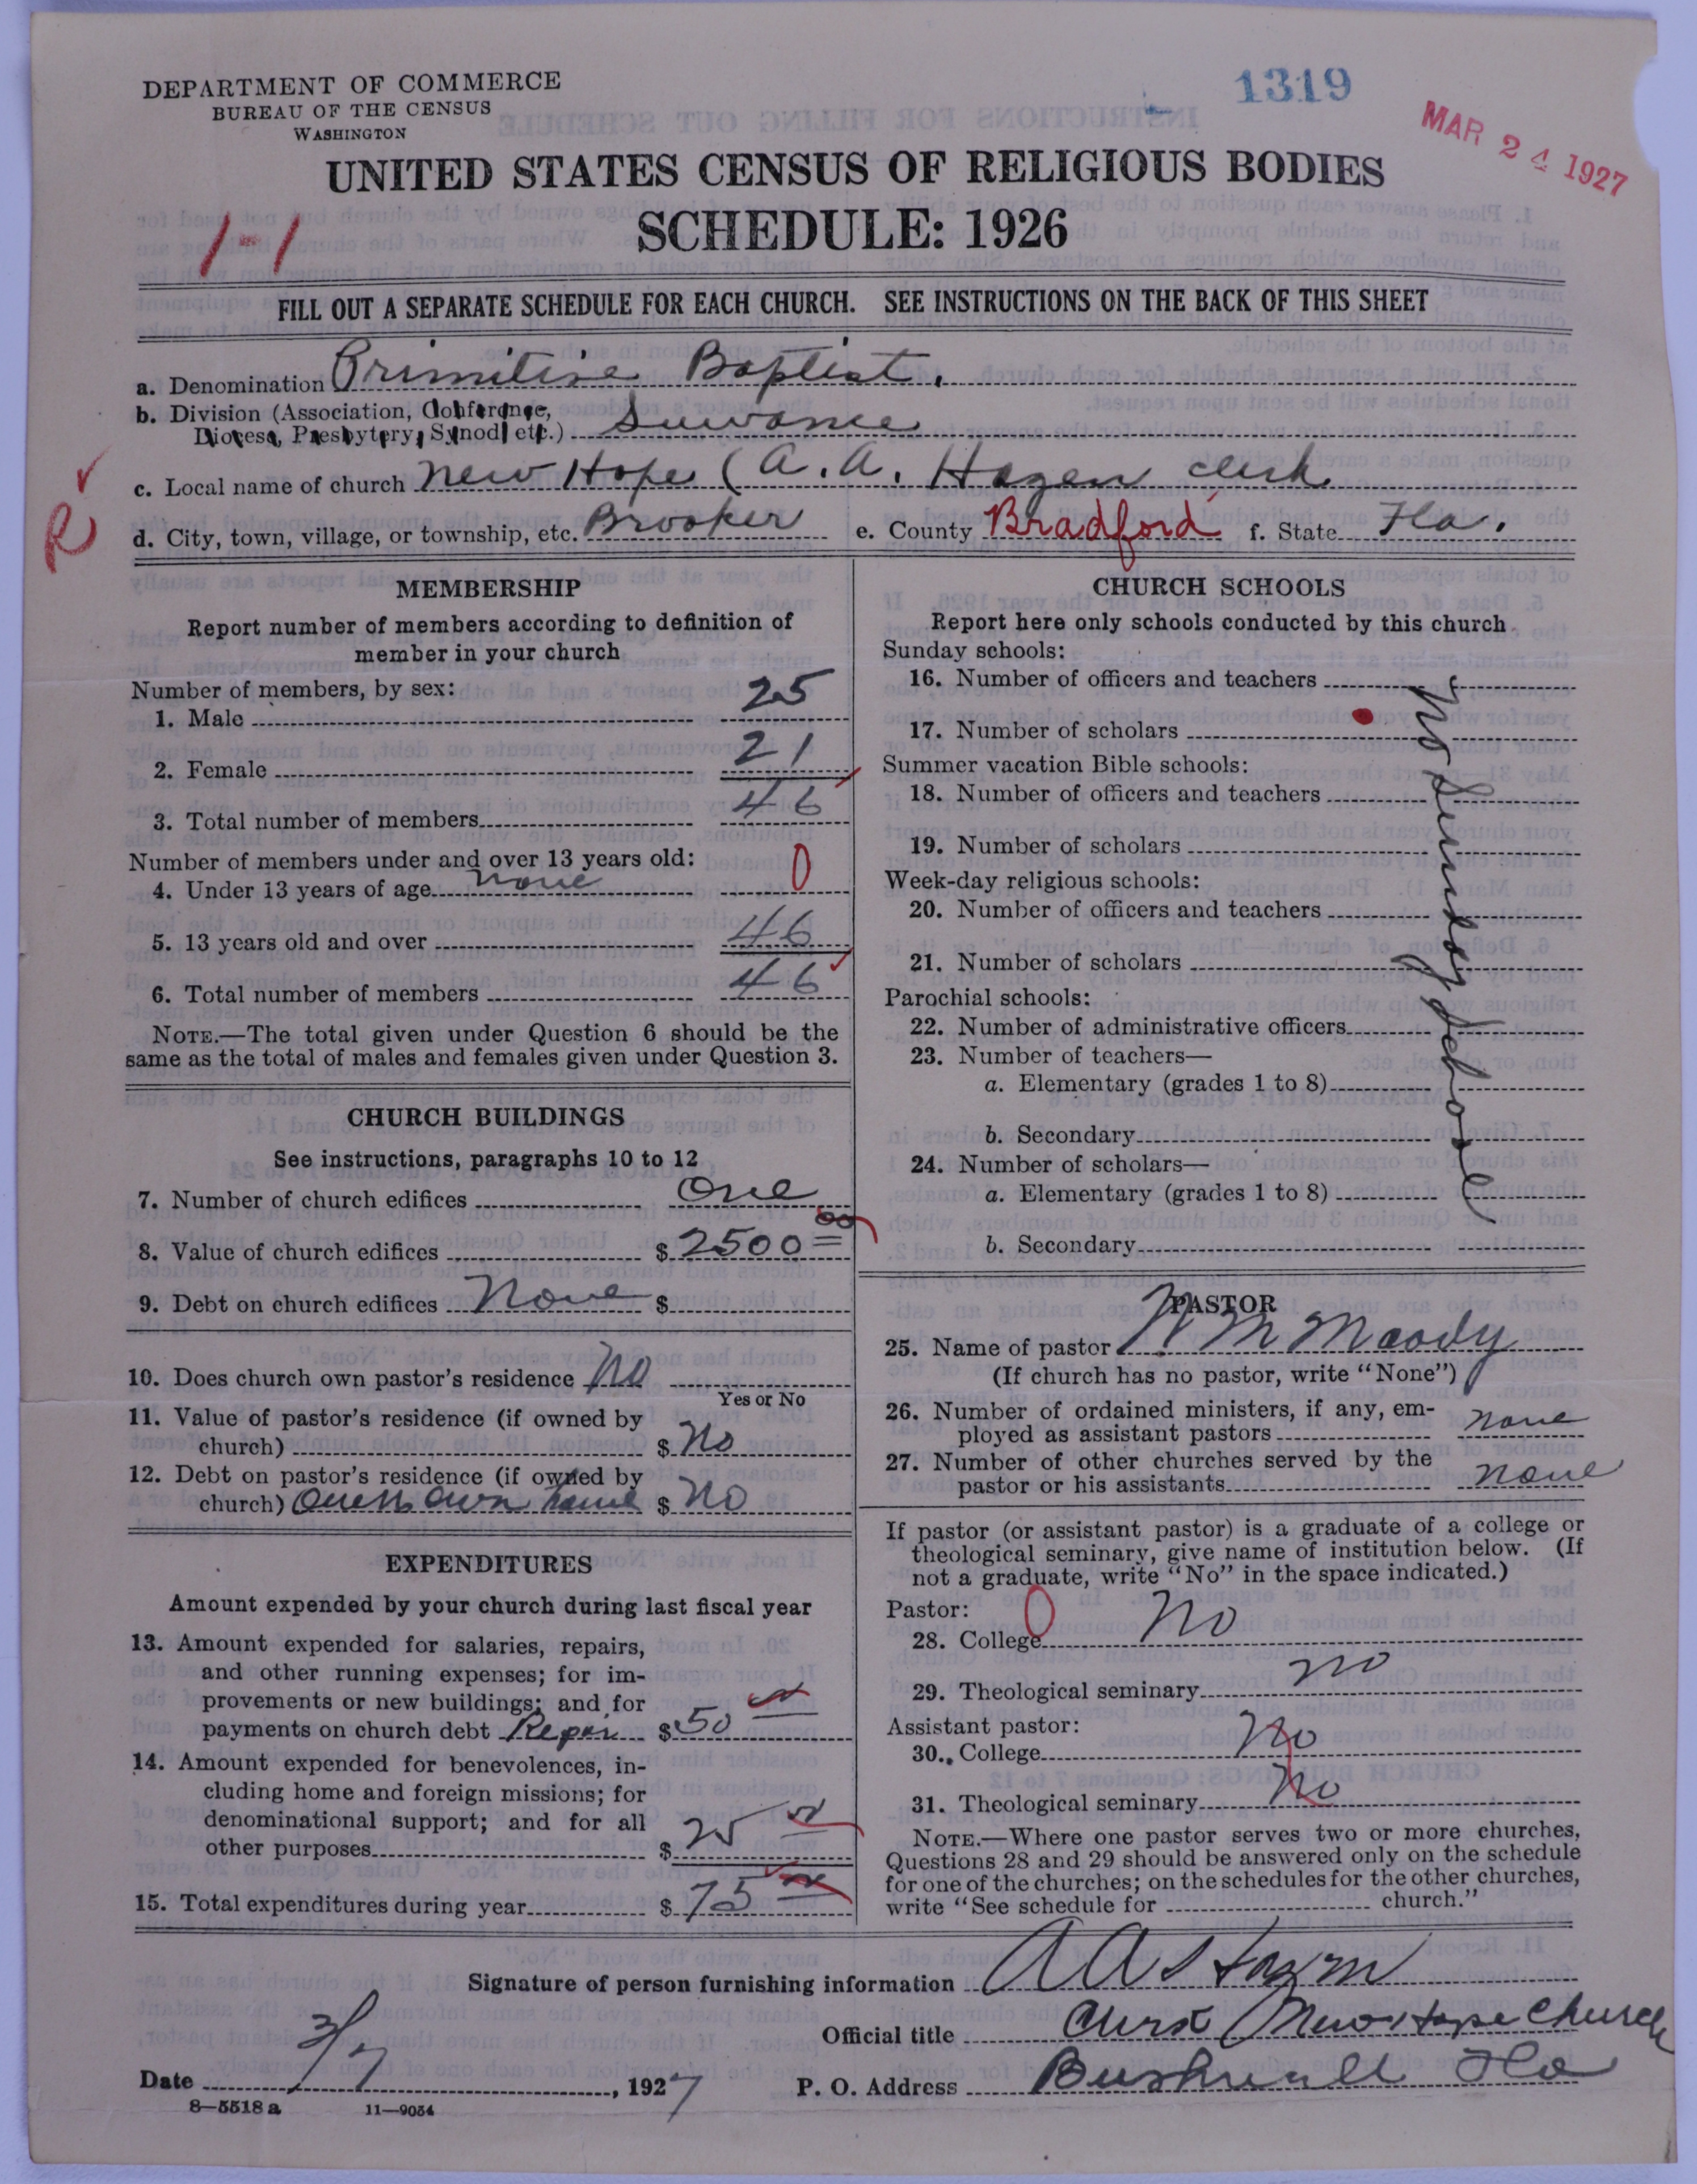 DEPARTMENT OF COMMERCE
BUREAU OF THE CENSUS
WASHINGTON
1319
MAR 24 1927
UNITED STATES CENSUS OF RELIGIOUS BODIES
SCHEDULE: 1926
1-1
FILL OUT A SEPARATE SCHEDULE FOR EACH CHURCH. SEE INSTRUCTIONS ON THE BACK OF THIS SHEET
a. Denomination Primitive Baptist.
b. Division (Association, Conference,
Diocese, Presbytery, Synod, etc.) Suwanee
R
c. Local name of church New Hope (A. A. Hazen clerk
d. City, town, village, or township, etc. Brooker e. County Bradford f. State Fla.
MEMBERSHIP
Report number of members according to definition of
member in your church
Number of members, by sex:
1. Male 25
2. Female 21
3. Total number of members 46
Number of members under and over 13 years old:
4. Under 13 years of age none 0
5. 13 years old and over 46
6. Total number of members 46
NOTE.—The total given under Question 6 should be the
same as the total of males and females given under Question 3.
CHURCH BUILDINGS
See instructions, paragraphs 10 to 12
7. Number of church edifices One
8. Value of church edifices $ 2500 00
9. Debt on church edifices None $
10. Does church own pastor's residence No
Yes or No
11. Value of pastor's residence (if owned by
church) $ No
12. Debt on pastor's residence (if owned by
church) own home $ No
EXPENDITURES
Amount expended by your church during last fiscal year
13. Amount expended for salaries, repairs,
and other running expenses; for im-
provements or new buildings; and for
payments on church debt Repair $ 50
14. Amount expended for benevolences, in-
cluding home and foreign missions; for
denominational support; and for all
other purposes $ 25
15. Total expenditures during year $ 75
CHURCH SCHOOLS
Report here only schools conducted by this church
Sunday schools:
16. Number of officers and teachers
17. Number of scholars
Summer vacation Bible schools:
18. Number of officers and teachers
19. Number of scholars
Week-day religious schools:
20. Number of officers and teachers
21. Number of scholars
Parochial schools:
22. Number of administrative officers
23. Number of teachers—
a. Elementary (grades 1 to 8)
b. Secondary
24. Number of scholars—
a. Elementary (grades 1 to 8)
b. Secondary
No Sunday School
PASTOR
25. Name of pastor M Moody
(If church has no pastor, write "None")
26. Number of ordained ministers, if any, em-
ployed as assistant pastors none
27. Number of other churches served by the
pastor or his assistants none
If pastor (or assistant pastor) is a graduate of a college or
theological seminary, give name of institution below. (If
not a graduate, write "No" in the space indicated.)
Pastor: 0
28. College No
29. Theological seminary no
Assistant pastor:
30. College No
31. Theological seminary No
NOTE.—Where one pastor serves two or more churches,
Questions 28 and 29 should be answered only on the schedule
for one of the churches; on the schedules for the other churches,
write "See schedule for church."
Signature of person furnishing information A A Hazen
Official title Clerk New Hope Church
Date 3/7, 1927 P. O. Address Bushnell Fla
8—5518 a 11—9034